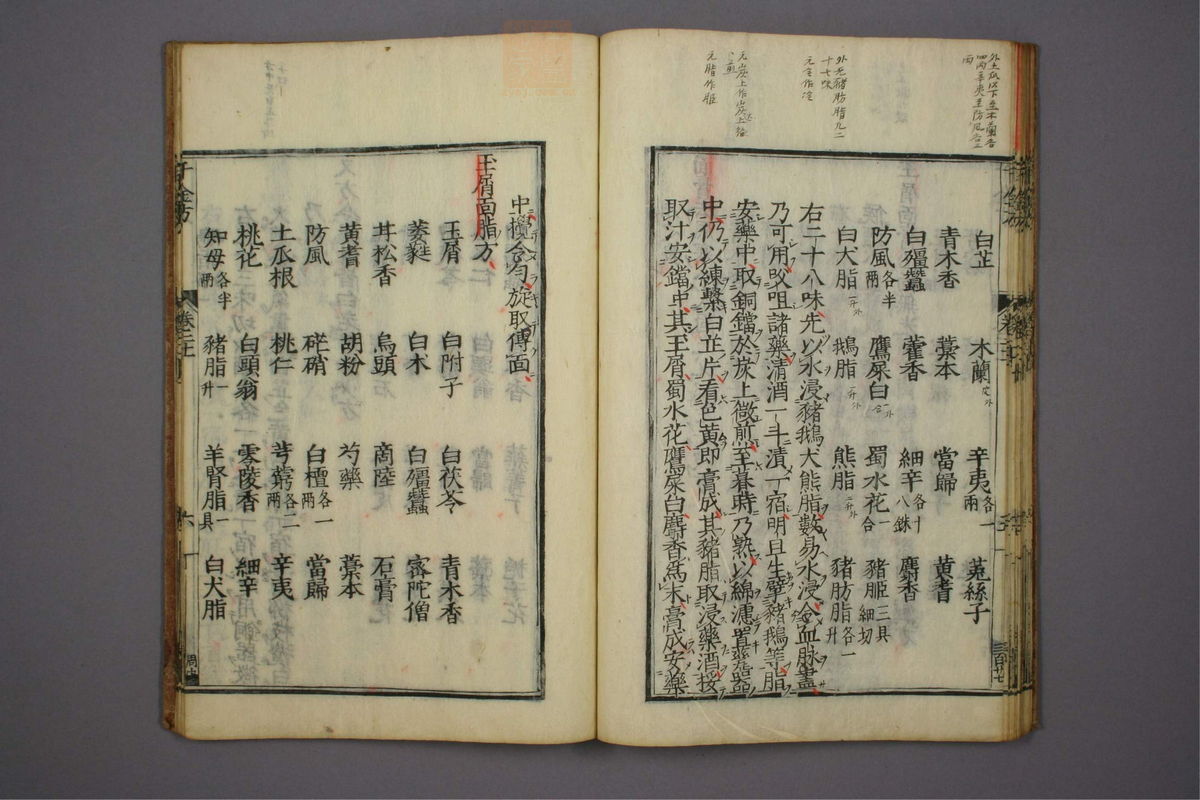 白芷 木蘭 辛夷各一兩 菟絲子
青木香 藁本 當歸 黃耆
白殭蠶 藿香 細辛各十八銖 麝香
防風各半兩 鷹屎白一合 蜀水花一合 豬脂三具細切
白犬脂一升 鵝脂一升 熊脂二升 豬肪脂各一升
右二十八味先以水浸豬鵝犬熊脂數易水浸令血脉盡
乃可用㕮咀諸藥清酒一斗漬一宿明旦生擘豬鵝等脂
安藥中取銅鐺於炭上微煎至暮時乃熟以綿濾置甆器
中仍以練繫白芷片看色黃即膏成其豬脂取浸藥酒挼
取汁安鐺中其玉屑蜀水花鷹屎白麝香為末膏成安藥
中攪令勻旋取傅面
玉屑面脂方
玉屑 白附子 白茯苓 青木香
萎蕤 白术 白殭蠶 蜜陀僧
甘松香 烏頭 商陸 石膏
黃耆 胡粉 芍藥 藁本
防風 硭硝 白檀各一兩 當歸
土瓜根 桃仁 芎藭各二兩 辛夷
桃花 白頭翁 零陵香 細辛
知母各半兩 豬脂一升 羊腎脂一具 白犬脂
千金方